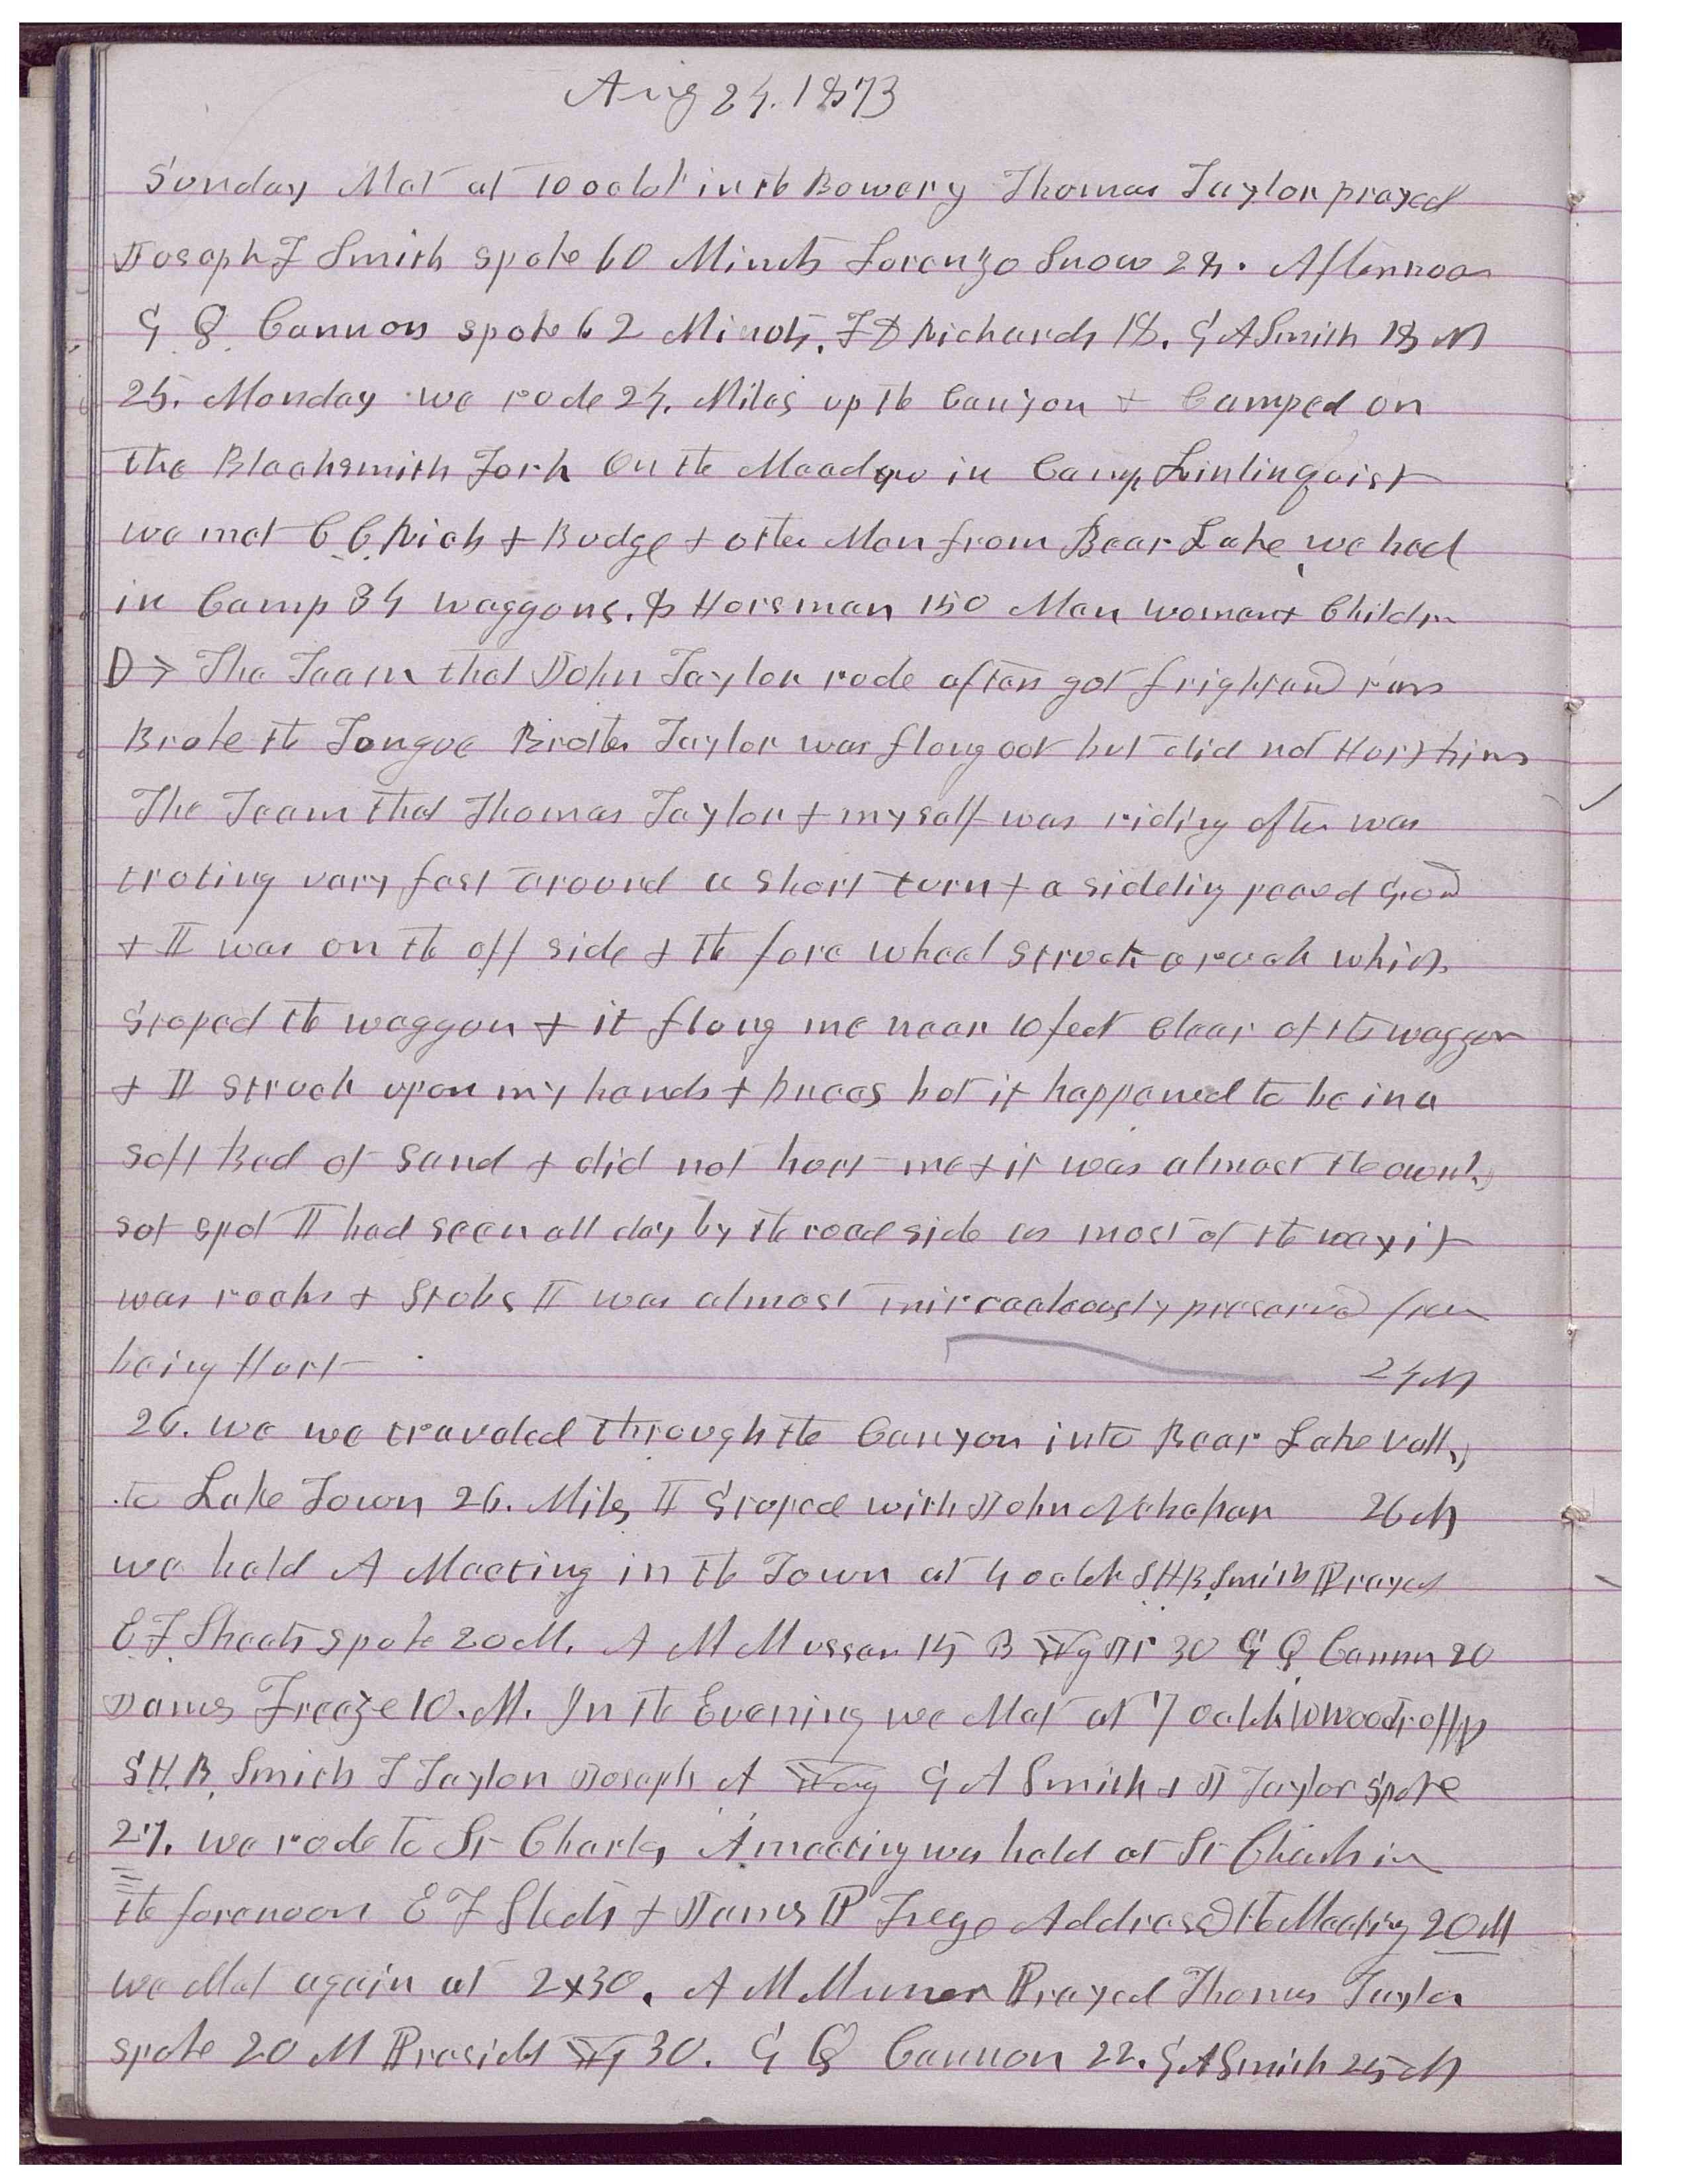 Aug 24. 1873
Sunday Met at 10 oclok in the Bowery Thomas Taylor prayed
Joseph F Smith spoke 60 Minuts Lorenzo Snow 28. Afternoon
G Q Cannon spoke 62 Minuts, F D Richards 18. G A Smith 18 M
25. Monday we rode 24. Miles up the Canyon & Camped on
the Blacksmith Fork On the Meadow in Camp
we met C C Rich & Budge & other Men from Bear Lake we had
in Camp 34 waggons. 8 Horsman 150 Men women & Childrn
D> The Team that John Taylor rode after got frightand run
Broke the Tongue Brother Taylor was flung out but did not Hurt him
The Team that Thomas Taylor & myself was riding after was
troting very fast around a short turn & a sideling
& I was on the off side & the fore wheel struck a rock which
stoped the waggon & it flung me near 10 feet clear of the waggon
& I struck upon my hands & knees but it happened to be in a
soft Bed of sand & did not hurt me & it was almost the ownly
sot spot I had seen all day by the road side as most of the way it
was rocks & stobs I was almost miraculously preservd from
being Hurt 24 M
26. we we traveled through the Canyon into Bear Lake vally
to Lake Town 26. Miles I stoped with John 26 M
we held A Meeting in the Town at 4 oclok S H B Smith Prayed
E F Sheets spoke 20 M. A M Musser 15 B Yg Jr 30 G Q Cannon 20
James Freeze 10. M. In the Evening we Met at 7 oclok W Woodruff
S H B Smith T Taylor Joseph A Yog G A Smith & J Taylor spoke
27. we rode to St Charls, A meeting was held at St Charls in
the forenoon E F Sheets & James P Frege Addressd the Meeting 20 M
we Met again at 2x30. A M Musser Prayed Thomas Taylor
spoke 20 M Presidet Yg 30. G Q Cannon 22. G A Smith 25 M